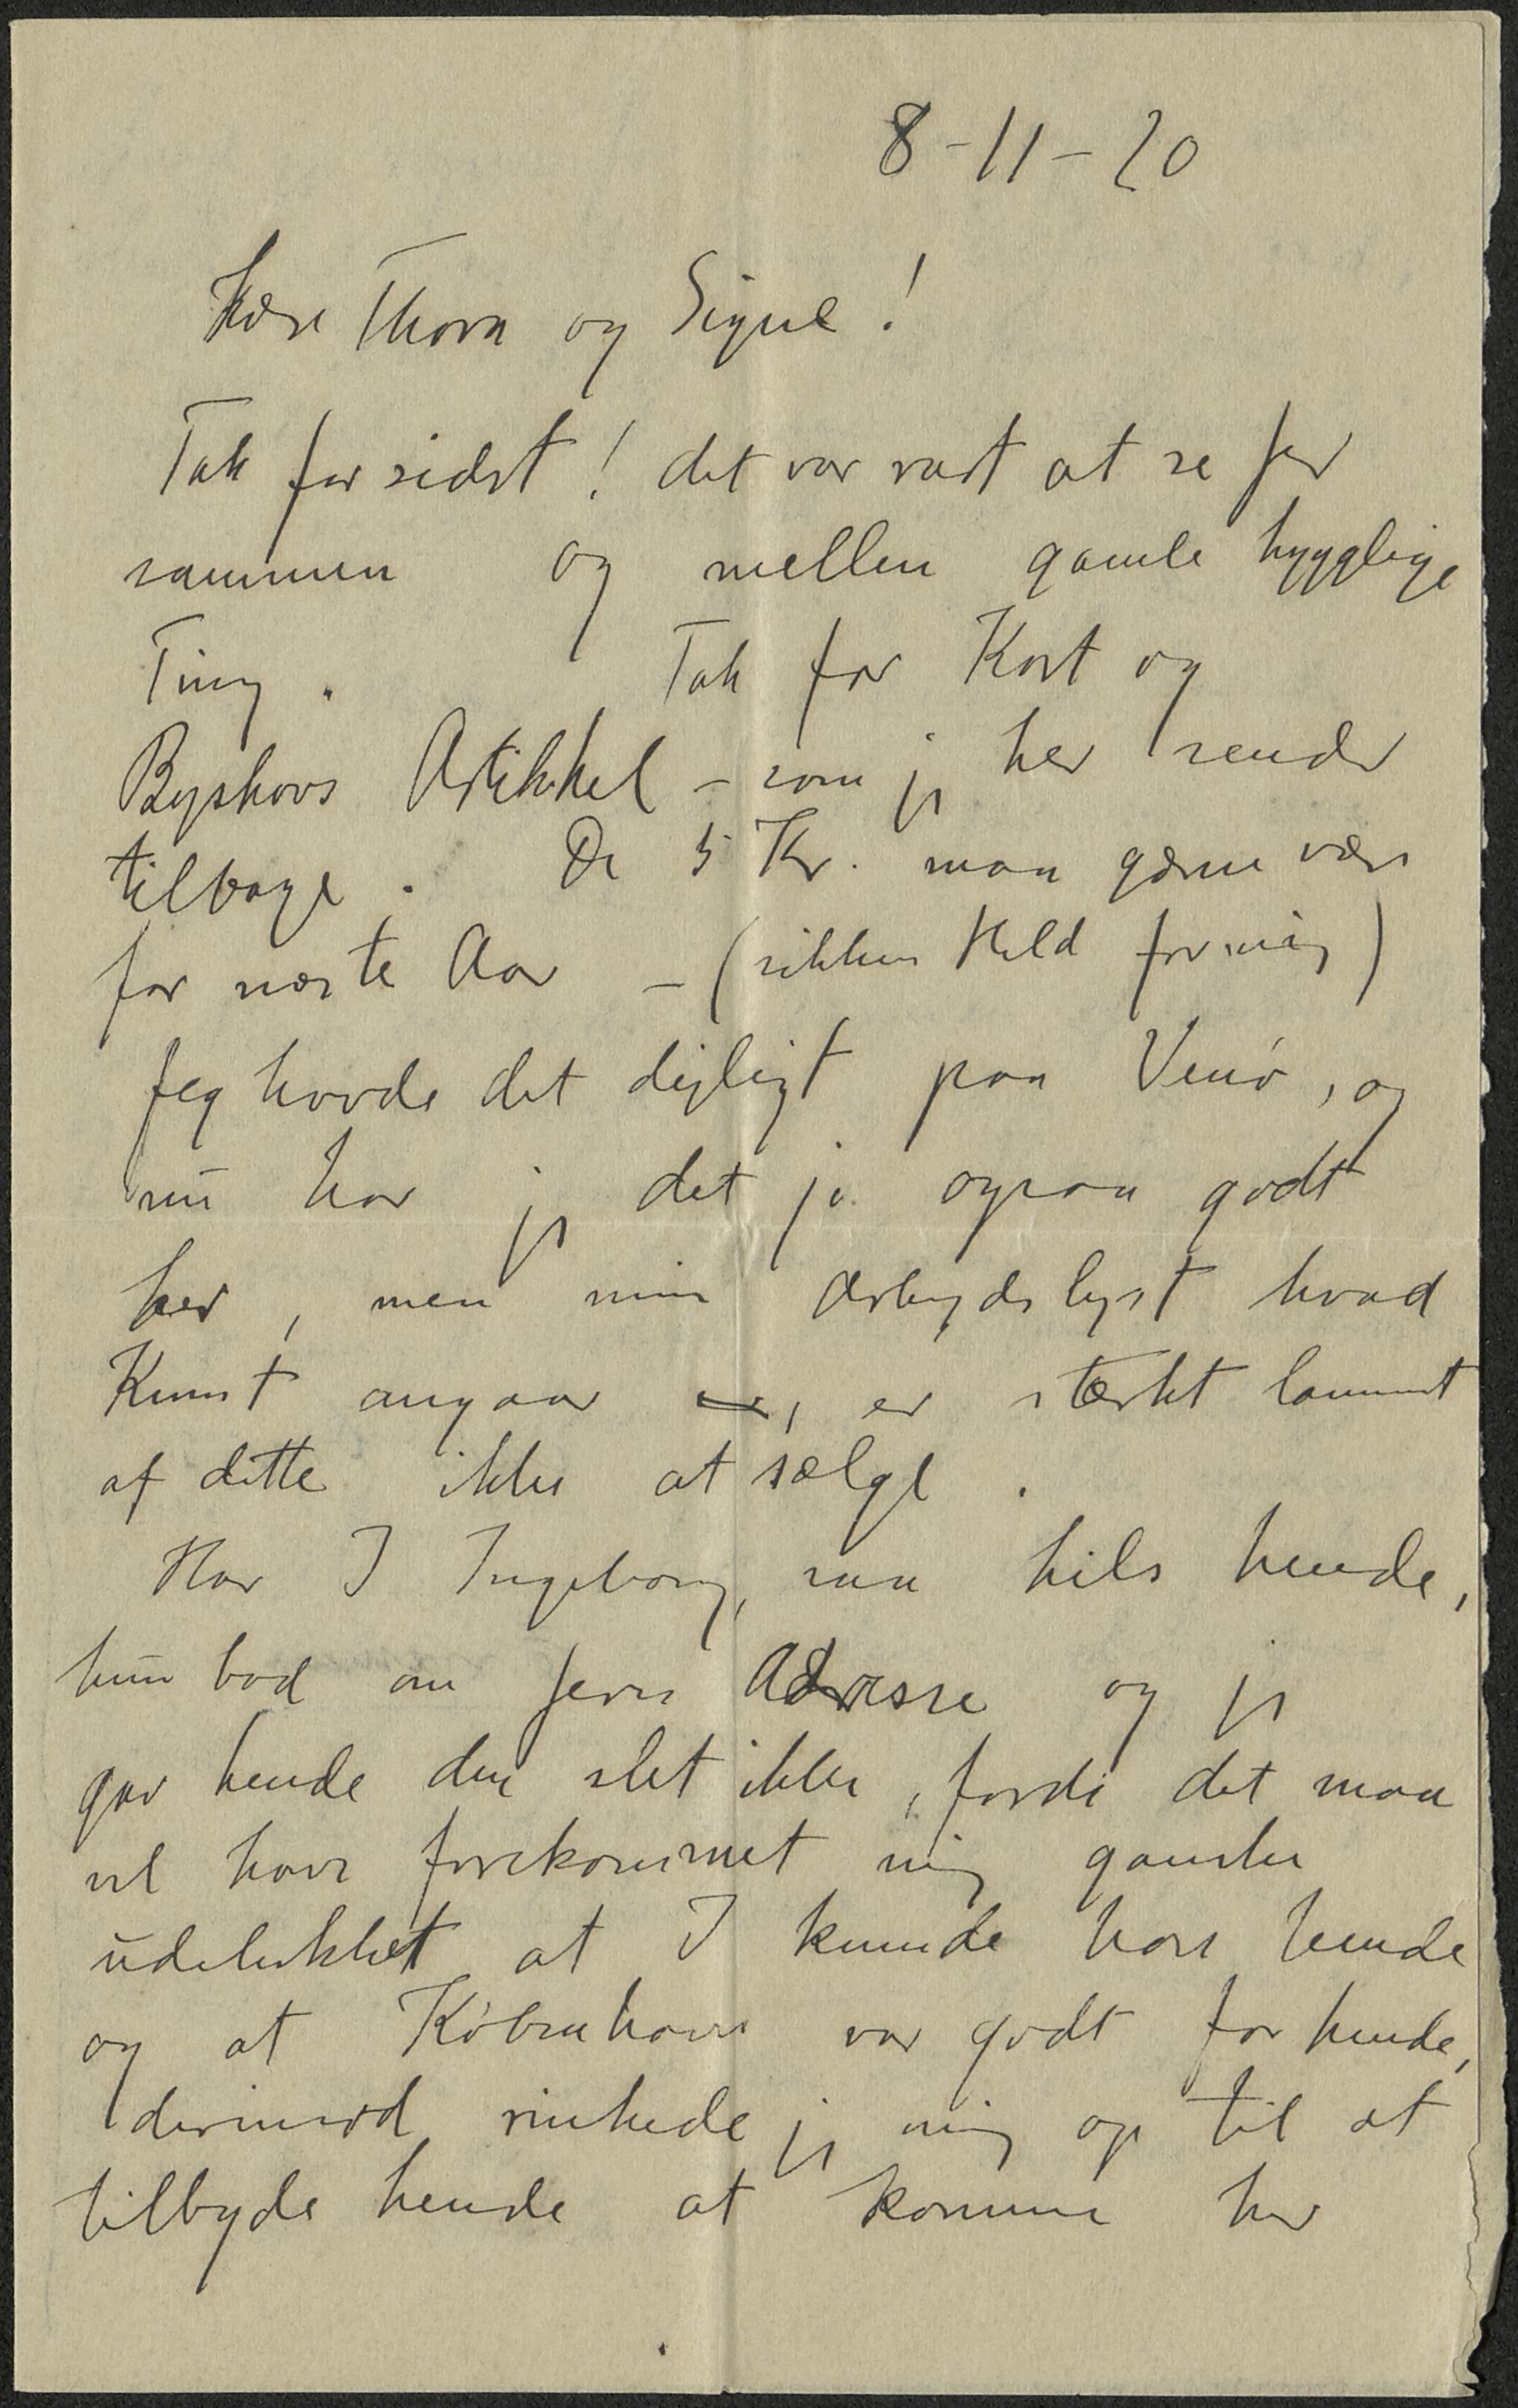 8-11-20
Kære Thora og Signe!
Tak for sidst! det var rart at se jer
sammen og mellem gamle hygglige
Ting. Tak for Kort og
Byskovs Artikkel - som jeg her sender
tilbage. De 5 Kr. maa gærne være
for næste Aar - (sikken Held for mig)
Jeg havde det dejligt paa Venø, og
nu har jeg det jo ogsaa godt
her, men min Arbejdslyst hvad
Kunst angaar er, er stærkt lammet
af dette ikke at sælge.
Har I Ingeborg, saa hils hende,
hun bad om Jeres Adresse og jeg
gav hende den slet ikke, fordi det maa
vel have forekommet mig ganske
udelukket at I kunde have hende
og at København var godt for hende,
derimod rinkede jeg mig op til at
tilbyde hende at komme her